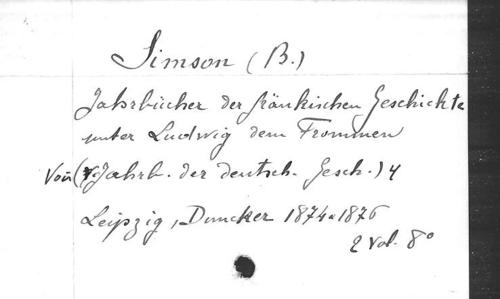 Simson (B.)
Jahrbücher der fränkischen Geschichte
unter Ludwig dem Frommen
(Jahrb. der deutsch. Gesch.) 4
Leipzig, Duncker 1874 a 1876
2 Vol. 8°